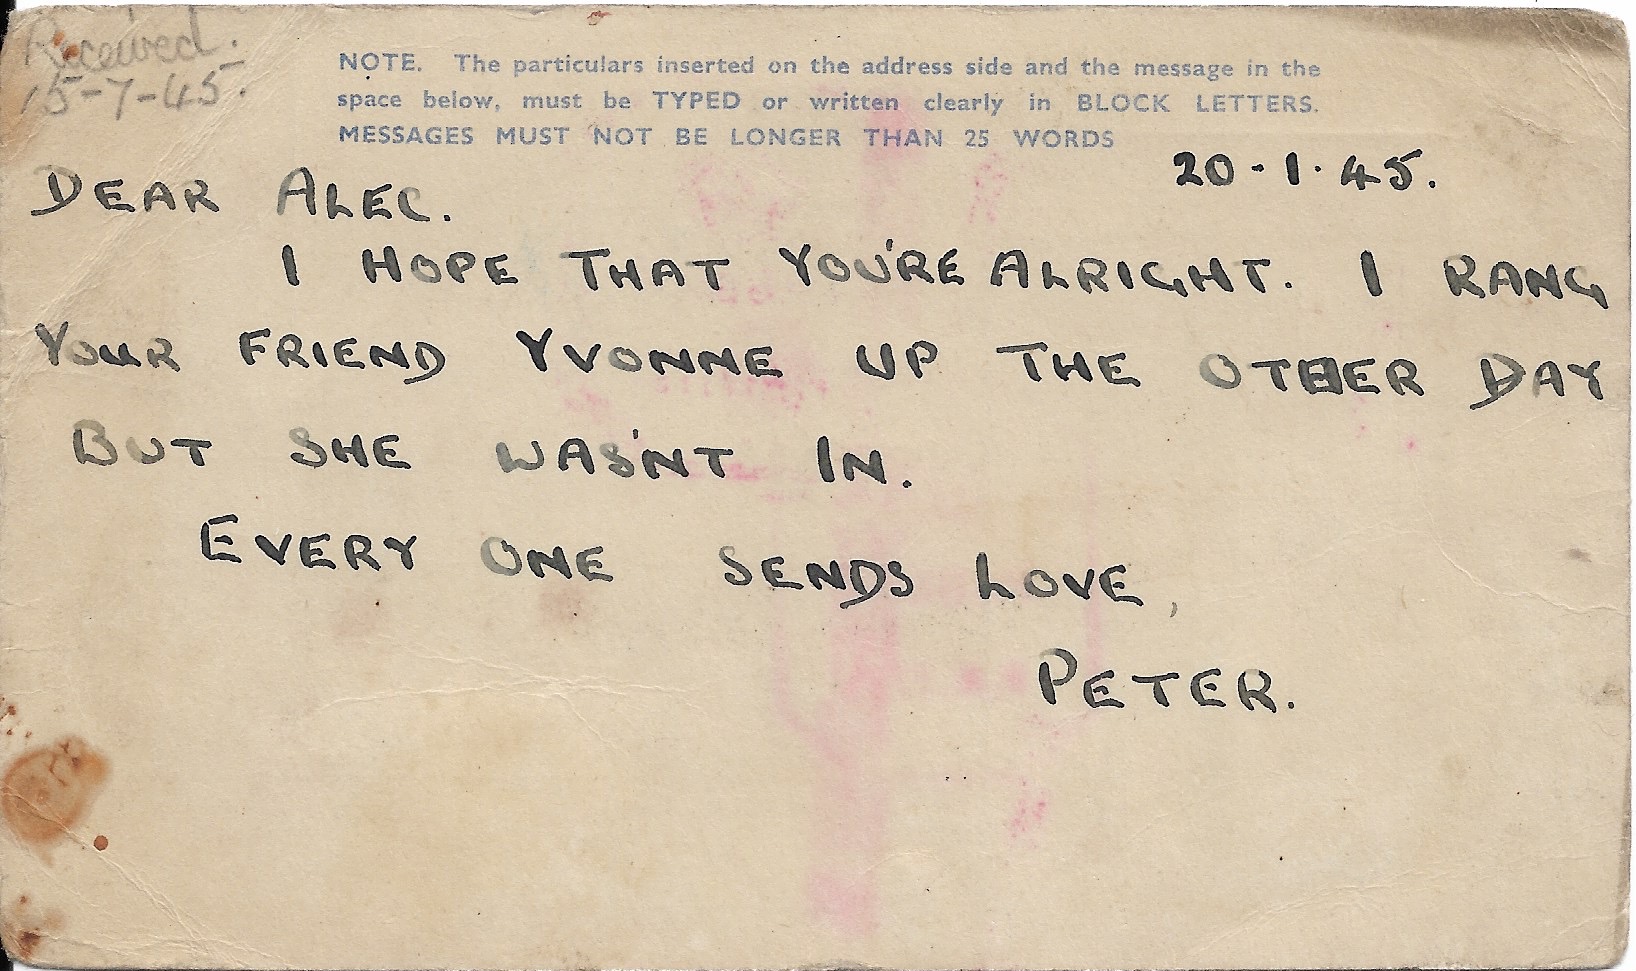 Received.
15-7-45.
NOTE. The particulars inserted on the address side and the message in the
space below, must be TYPED or written clearly in BLOCK LETTERS.
MESSAGES MUST NOT BE LONGER THAN 25 WORDS
20-1-45.
DEAR ALEC.
I HOPE THAT YOU'RE ALRIGHT. I RANG
YOUR FRIEND YVONNE UP THE OTHER DAY
BUT SHE WAS'NT IN.
EVERY ONE SENDS LOVE,
PETER.